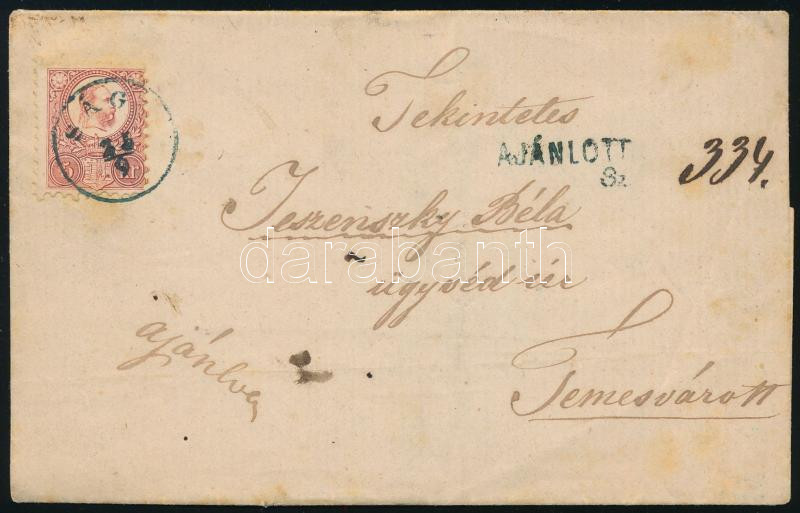 Tekintetes
AJÁNLOTT
Sz.
334.
Jeszenszky Béla
ügyvéd úr
ajánlva
Temesvárott
5 kr
darabanth